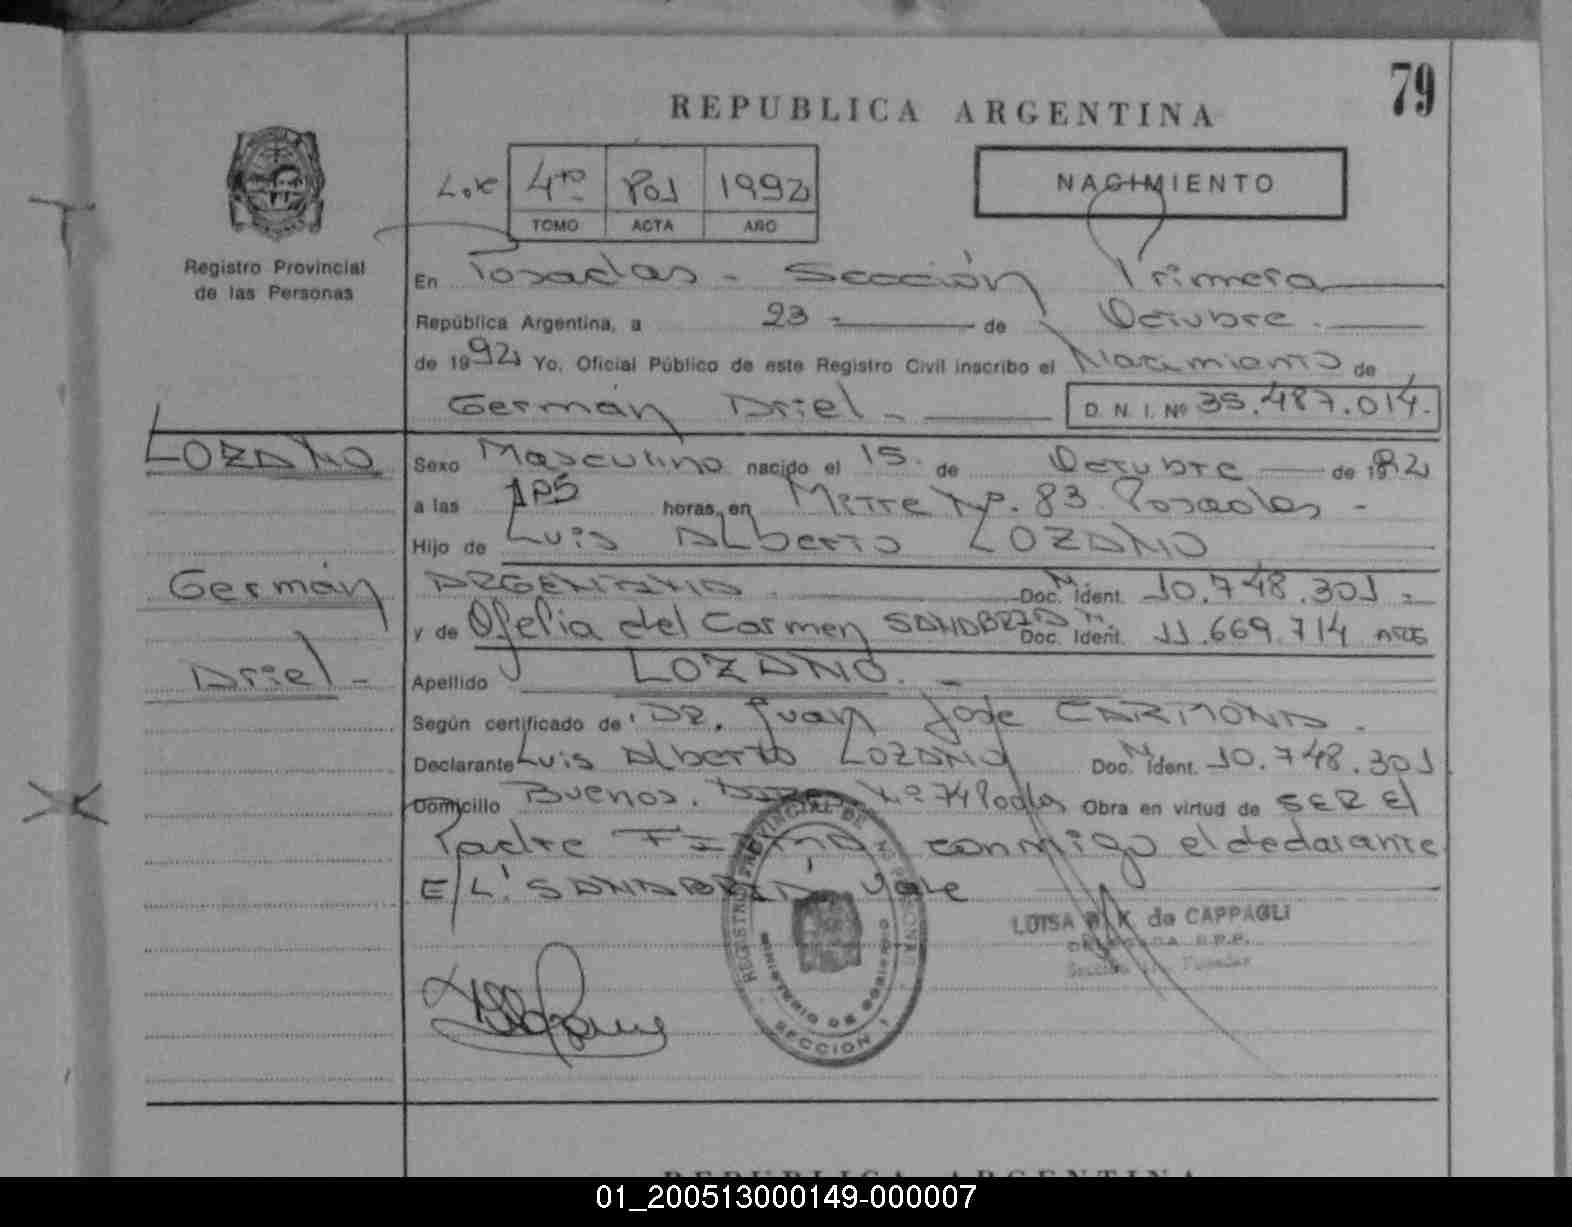 79
REPUBLICA ARGENTINA
NACIMIENTO
4to 1992
TOMO ACTA AÑO
Registro Provincial
de las Personas
En Posadas - Sección Primera
República Argentina, a 23 - de Octubre.
de 1992 Yo, Oficial Público de este Registro Civil inscribo el Nacimiento de
Germán Ariel - D. N. I. Nº 35.487.014.
LOZANO
Sexo Masculino nacido el 15. de Octubre de 1992
a las horas, en Mitre Nº. 83 Posadas -
Hijo de Luis Alberto LOZANO
Germán
ARGENTINO Doc. M. Ident. 10.748.301 -
y de Ofelia del Carmen SANABRIA Doc. Ident. 11.669.714
Ariel -
Apellido LOZANO. -
Según certificado de: DR. Juan José CARMONA -
Declarante Luis Alberto LOZANO Doc. M. Ident. 10.748.301
Domicilio Buenos. Aires Nº 74 Obra en virtud de SER El
Padre FIRMA conmigo el declarante
E/L: SANABRIA: Vale
LUISA de CAPPAGLI
DELEGADA R.P.P.
REGISTRO PROVINCIAL DE LAS PERSONAS
MINISTERIO DE GOBIERNO
SECCION 1
REPUBLICA ARGENTINA
01_200513000149-000007